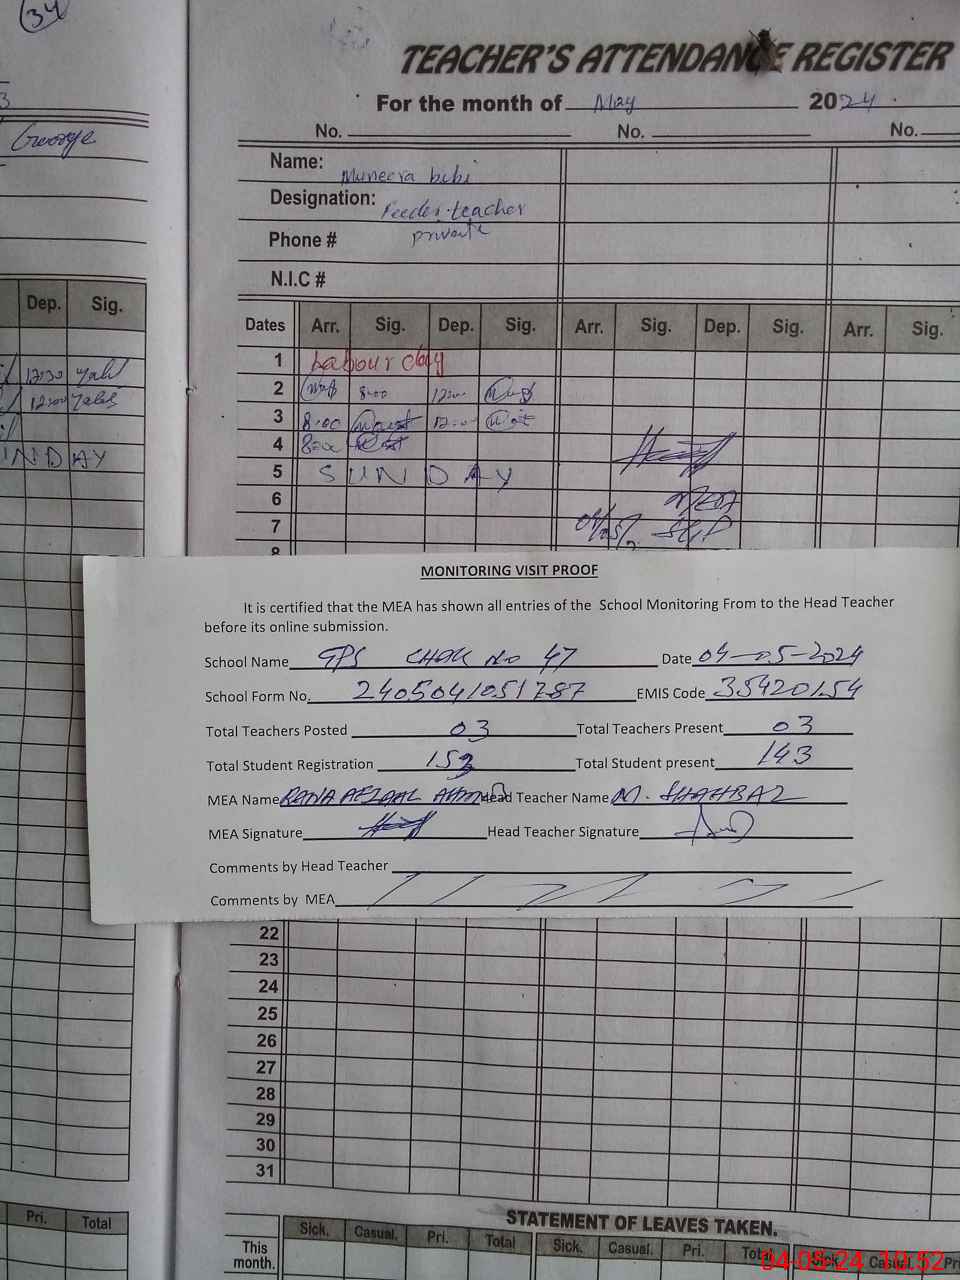 34
TEACHER'S ATTENDANCE REGISTER
For the month of May 2024
3
No. No. No.
George
Name: Muneera bibi
Designation: Feeder teacher
Phone # private
N.I.C #
Dep. Sig.
Dates Arr. Sig. Dep. Sig. Arr. Sig. Dep. Sig. Arr. Sig.
1 Labour day
12:30
2 8:00 12:00
12:00
3 8:00 12:00
4 8:00
5 SUNDAY
UNDAY
6 MEA
7 04/05/2
8
MONITORING VISIT PROOF
It is certified that the MEA has shown all entries of the School Monitoring From to the Head Teacher
before its online submission.
School Name GPS CHAK No 47 Date 04-05-2024
School Form No. 2405041051787 EMIS Code 35420154
Total Teachers Posted 03 Total Teachers Present 03
Total Student Registration 153 Total Student present 143
MEA Name RANA AFZAAL AHMAD Head Teacher Name M. SHAHBAZ
MEA Signature Head Teacher Signature
Comments by Head Teacher
Comments by MEA
22
23
24
25
26
27
28
29
30
31
Pri. Total
STATEMENT OF LEAVES TAKEN.
This month. Sick. Casual. Pri. Total Sick. Casual. Pri. Total Sick. Casual. Pri
04-05-24 10:52